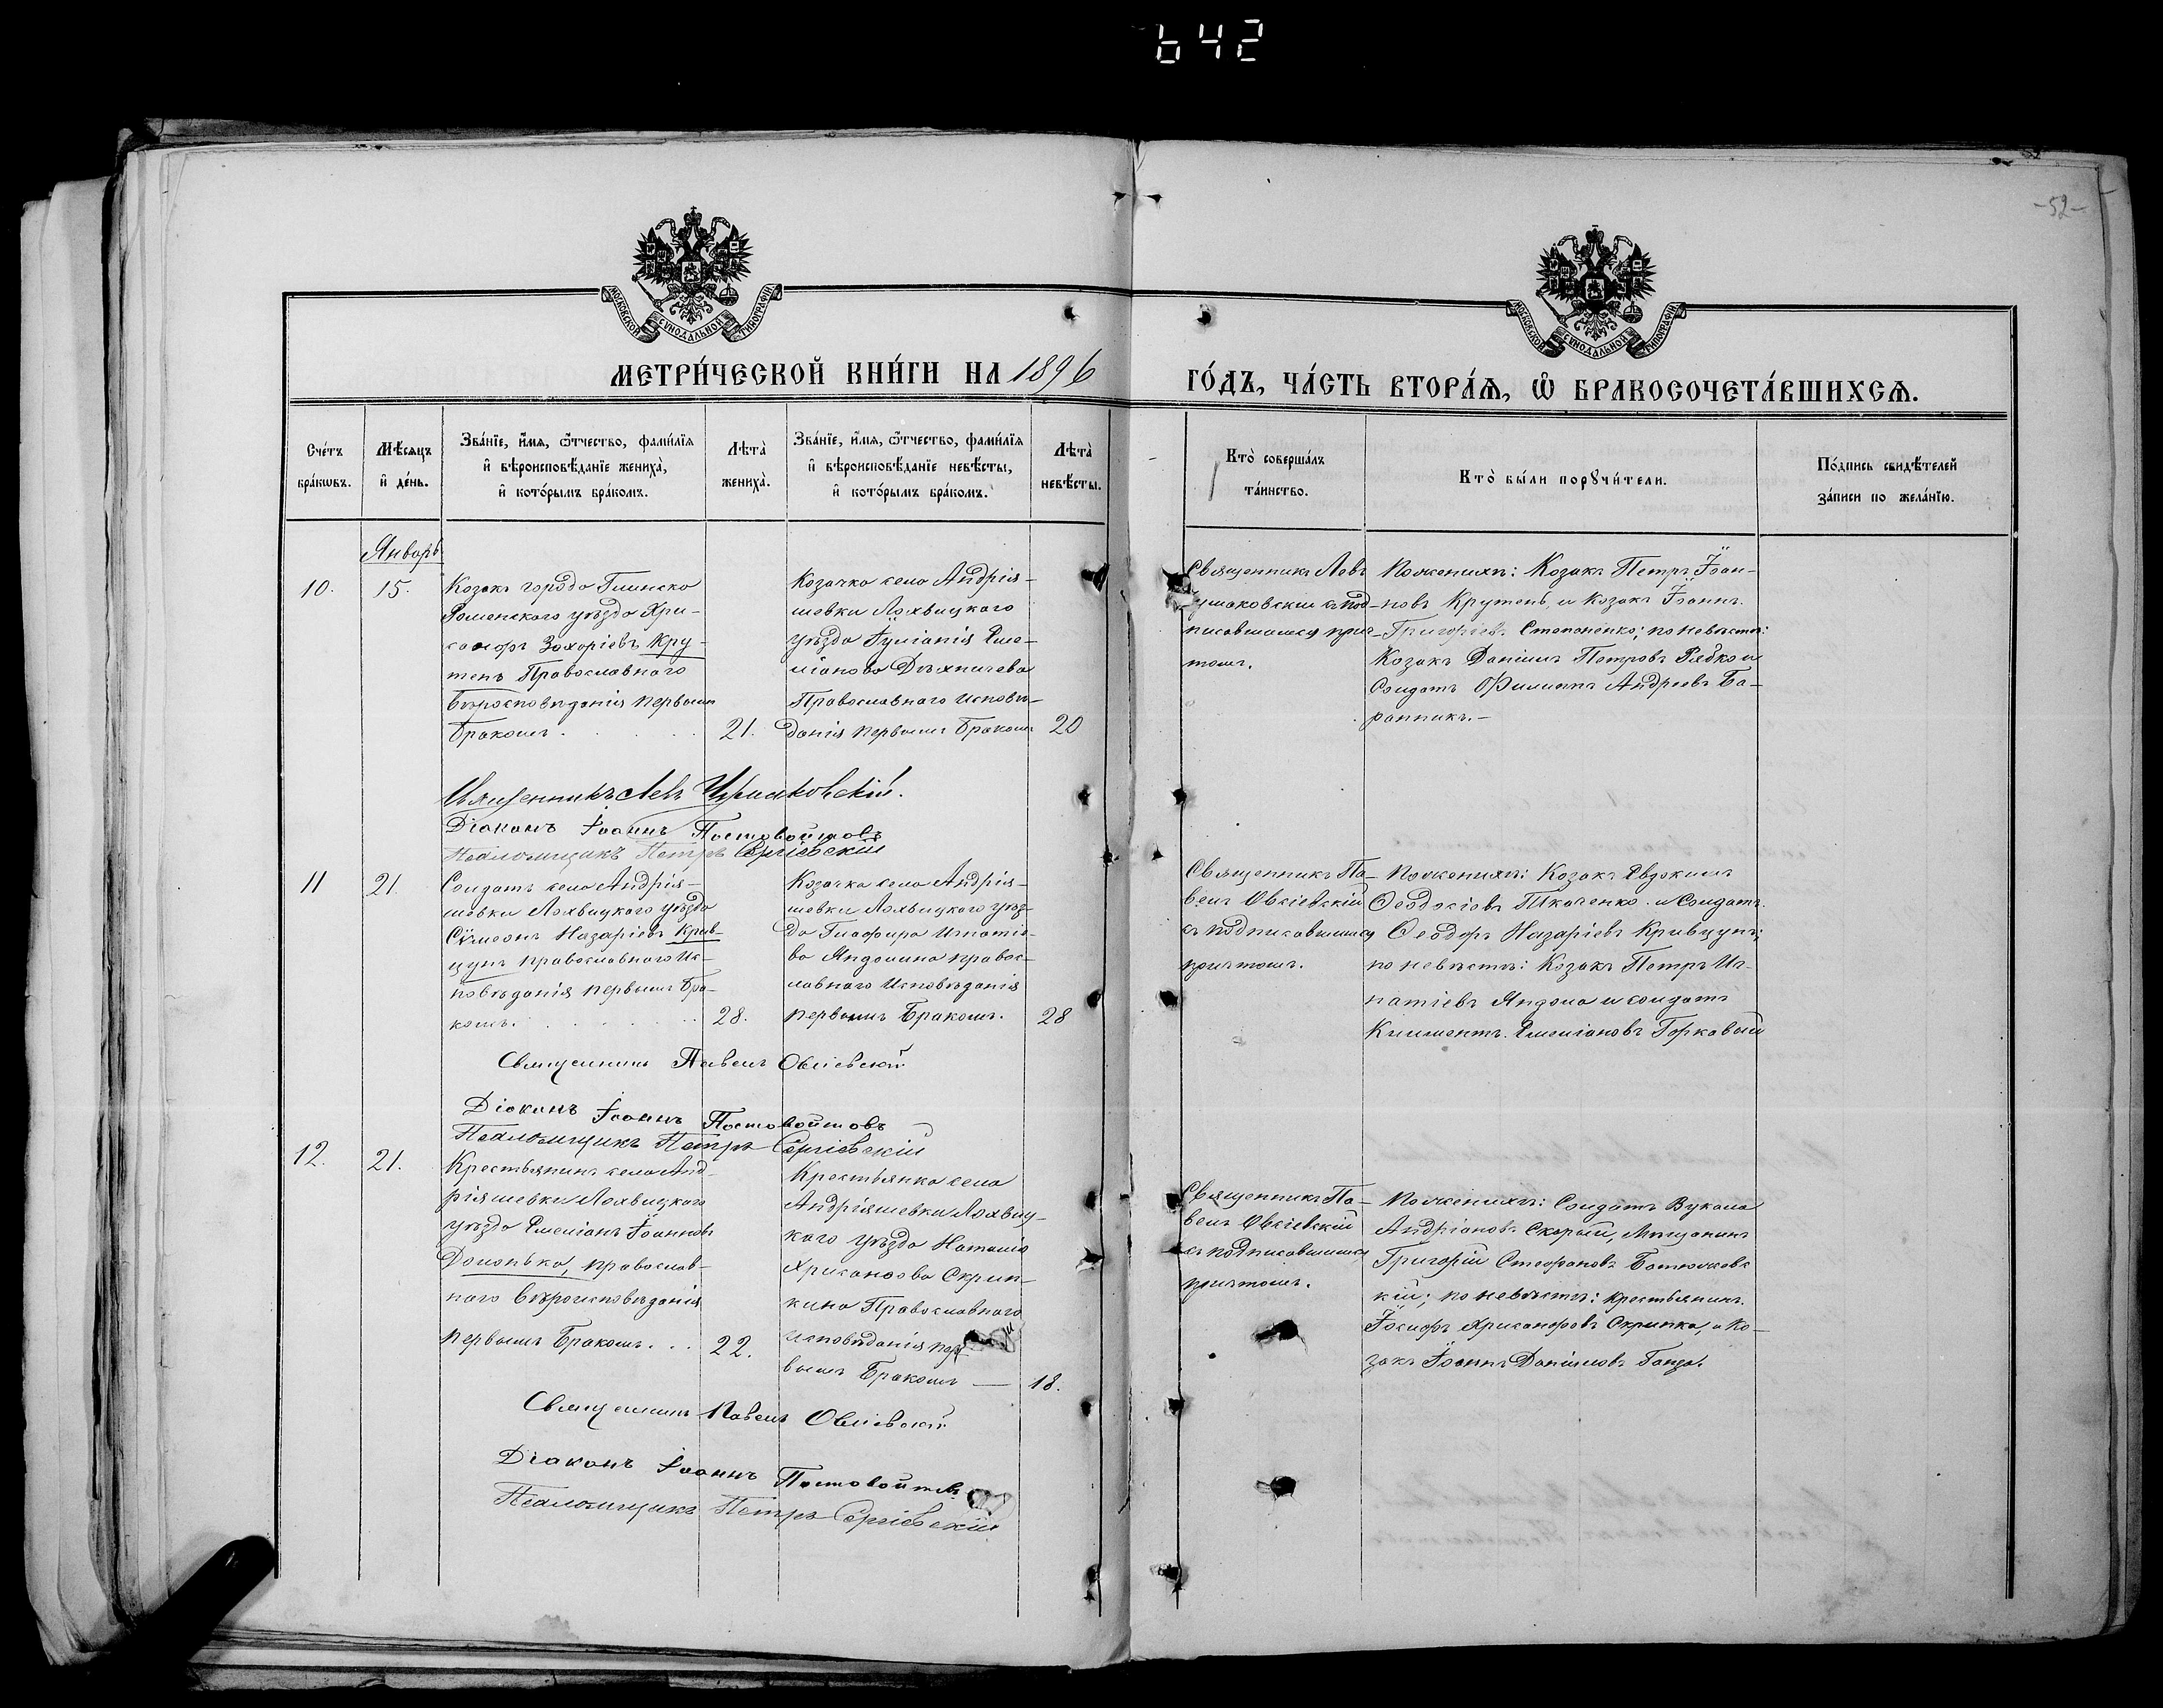 642
-52-
МОСКОВСКОЙ СѴНОДАЛЬНОЙ ТИПОГРАФІИ
МОСКОВСКОЙ СѴНОДАЛЬНОЙ ТИПОГРАФІИ
МЕТРИ́ЧЕСКОЙ КНИ́ГИ НА 1896
ГО́ДЪ, ЧА́СТЬ ВТОРА́Ѧ, Ѡ БРАКОСОЧЕТА́ВШИХСѦ.
Сче́тъ
бра́кѡвъ.
Мѣ́сѧцъ
и҆ де́нь.
Зва́нїе, и҆́мѧ, ѻ҆́тчество, фами́лїѧ
и҆ вѣроисповѣ́данїе жениха̀,
и҆ кото́рымъ бра́комъ.
Лѣта̀
жениха̀.
Зва́нїе, и҆́мѧ, ѻ҆́тчество, фами́лїѧ
и҆ вѣроисповѣ́данїе невѣ́сты,
и҆ кото́рымъ бра́комъ.
Лѣта̀
невѣ́сты.
Кто̀ соверша́лъ
та́инство.
Кто̀ бы́ли порꙋчи́тели.
По́дпись свидѣ́телей
за́писи по жела́нїю.
Январь
10.
15.
Козакъ города Глинска
Роменскаго уѣзда Хри-
санфъ Захаріевъ Кру-
тень Православнаго
Вѣроисповѣданія первымъ
бракомъ.
21.
Козачка села Андрія-
шевки Лохвицкаго
уѣзда Іуліанія Еме-
ліанова
Православнаго Исповѣ-
данія первымъ бракомъ
20
Священникъ Левъ
Чушаковскій съ под-
писавшимся прич-
томъ.
По женихѣ: Козакъ Петръ Іоан-
новъ Крутень, и Козакъ Іоаннъ
Григоріевъ Степаненко; по невѣстѣ:
Козакъ Даніилъ Петровъ Рябко и
Солдатъ Филиппъ Андреевъ Ба-
ранникъ.-
Священникъ Левъ
Діаконъ Іоаннъ Постовойтовъ
Псаломщикъ Петръ Сергіевскій
11
21
Солдатъ села Андрія-
шевки Лохвицкаго уѣзда
Сѵмеонъ Назаріевъ Крив-
цунъ православнаго Ис-
повѣданія первымъ бра-
комъ.
28.
Козачка села Андрія-
шевки Лохвицкаго уѣз-
да Глафира Игнатіе-
ва Яндолина правос-
лавнаго Исповѣданія
первымъ бракомъ.
28
Священникъ Па-
велъ Овсіевскій
съ подписавшимся
причтомъ.
По женихѣ: Козакъ Евдокимъ
Ѳеодосіевъ Ткаченко и Солдатъ
Ѳеодоръ Назаріевъ Кривцунъ;
по невѣстѣ: Козакъ Петръ Иг-
натіевъ Яндола и солдатъ
Климентъ Емеліановъ Горкавый
Священникъ Павелъ Овсіевскій
Діаконъ Іоаннъ Постовойтовъ
Псаломщикъ Петръ Сергіевскій
12.
21.
Крестьянинъ села Анд-
ріяшевки Лохвицкаго
уѣзда Емеліанъ Іоанновъ
Дононька, православ-
наго вѣроисповѣданія
первымъ бракомъ...
22.
Крестьянка села
Андріяшевки Лохвиц-
каго уѣзда Наталія
Хрисанфова Скрип-
кина Православнаго
исповѣданія пер
вымъ бракомъ —
18.
Священникъ Па-
велъ Овсіевскій
съ подписавшимся
причтомъ.
По женихѣ: Солдатъ Вукола
Андріановъ Скорый, Мѣщанинъ
Григорій Стефановъ
кій; по невѣстѣ: крестьянинъ
Іосифъ Хрисанфовъ Скрипка, и Ко-
закъ Іоаннъ Даніиловъ Ганза.
Священникъ Павелъ Овсіевскій
Діаконъ Іоаннъ Постовойтовъ
Псаломщикъ Петръ Сергіевскій